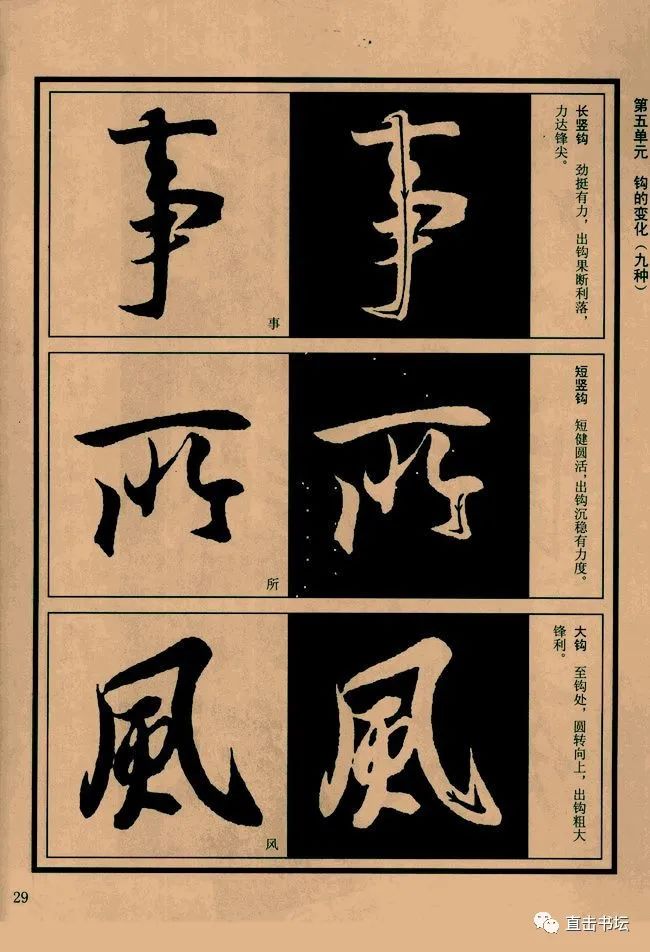 第五单元　钩的变化（九种）
长竖钩　劲挺有力，出钩果断利落，
力达锋尖。
事
事
事
短竖钩　短健圆活，出钩沉稳有力度。
所
所
所
大钩　至钩处，圆转向上，出钩粗大
锋利。
風
風
风
29
直击书坛